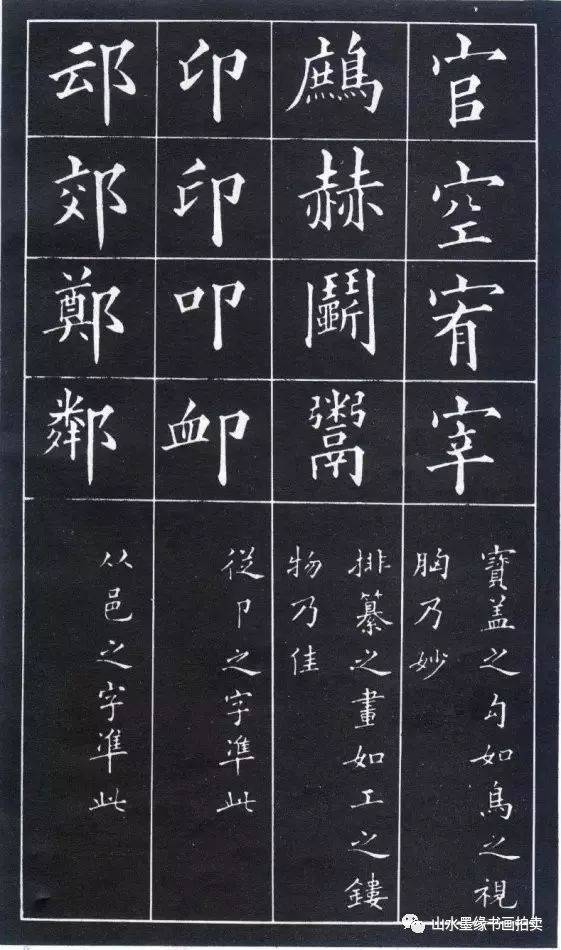 官
空
宥
宰
寶盖之勾如鳥之視
胸乃妙
鷓
赫
鬭
鬻
排纂之畫如工之鏤
物乃佳
印
印
叩
卹
從卩之字準此
䢵
郊
鄭
鄰
从邑之字準此
山水墨缘书画拍卖